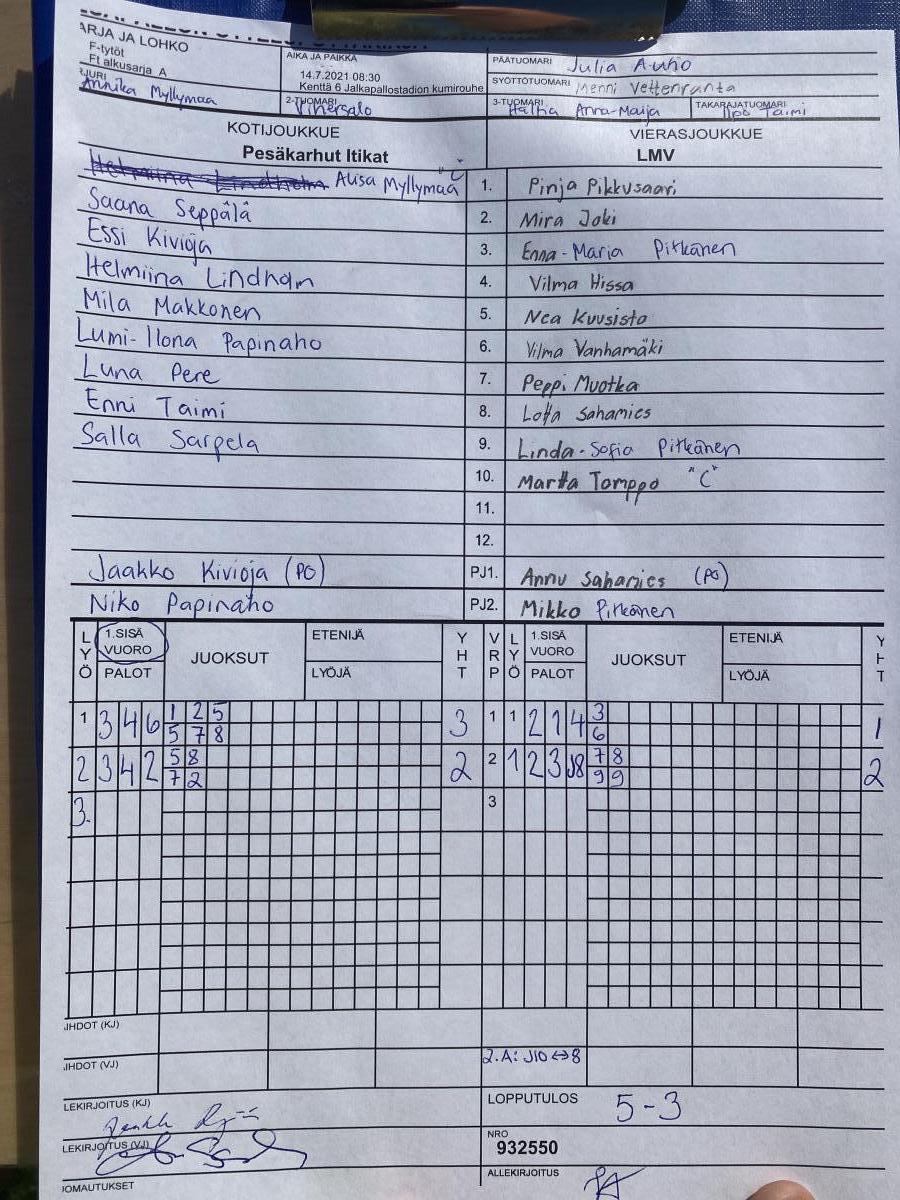 ARJA JA LOHKO
F-tytöt
Ft alkusarja A
Annika Myllymaa
AIKA JA PAIKKA
14.7.2021 08:30
Kenttä 6 Jalkapallostadion kumirouhe
2-TUOMARI
PÄÄTUOMARI Julia Auho
SYÖTTÖTUOMARI Menni Vettenranta
3-TUOMARI Anna-Maija
TAKARAJATUOMARI Ilpo Taimi
KOTIJOUKKUE
Pesäkarhut Itikat
VIERASJOUKKUE
LMV
Helmiina Lindholm Alisa Myllymaa "C" 1. Pinja Pikkusaari
Saana Seppälä 2. Mira Joki
Essi Kivioja 3. Enna-Maria Pitkänen
Helmiina Lindholm 4. Vilma Hissa
Mila Makkonen 5. Nea Kuusisto
Lumi-Ilona Papinaho 6. Vilma Vanhamäki
Luna Pere 7. Peppi Muotka
Enni Taimi 8. Lotta Sahamies
Salla Sarpela 9. Linda-Sofia Pitkänen
10. Martta Tomppo "C"
11.
12.
Jaakko Kivioja (PO) PJ1. Annu Sahamies (PO)
Niko Papinaho PJ2. Mikko Pitkänen
LYÖ 1.SISÄ VUORO PALOT JUOKSUT ETENIJÄ LYÖJÄ YHT VRP LYÖ 1.SISÄ VUORO PALOT JUOKSUT ETENIJÄ LYÖJÄ YHT
1 3 4 6 1 2 5 3 1 1 2 1 4 3 1
5 7 8 6
2 3 4 2 5 8 2 2 1 2 3 J8 7 8 2
7 2 9 9
3. 3
IHDOT (KJ)
IHDOT (VJ) 2.A: J10 ↔ 8
LEKIRJOITUS (KJ)
LOPPUTULOS 5-3
LEKIRJOITUS (VJ)
NRO
932550
ALLEKIRJOITUS
IOMAUTUKSET